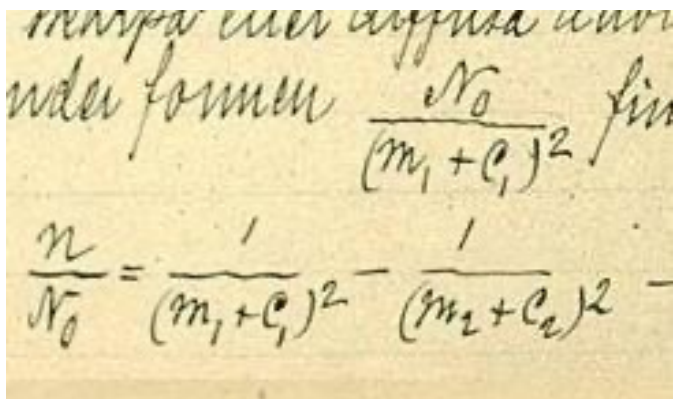 skarpa eller diffusa
under formen N₀/(m₁ + c₁)²
n/N₀ = 1/(m₁ + c₁)² − 1/(m₂ + c₂)² −